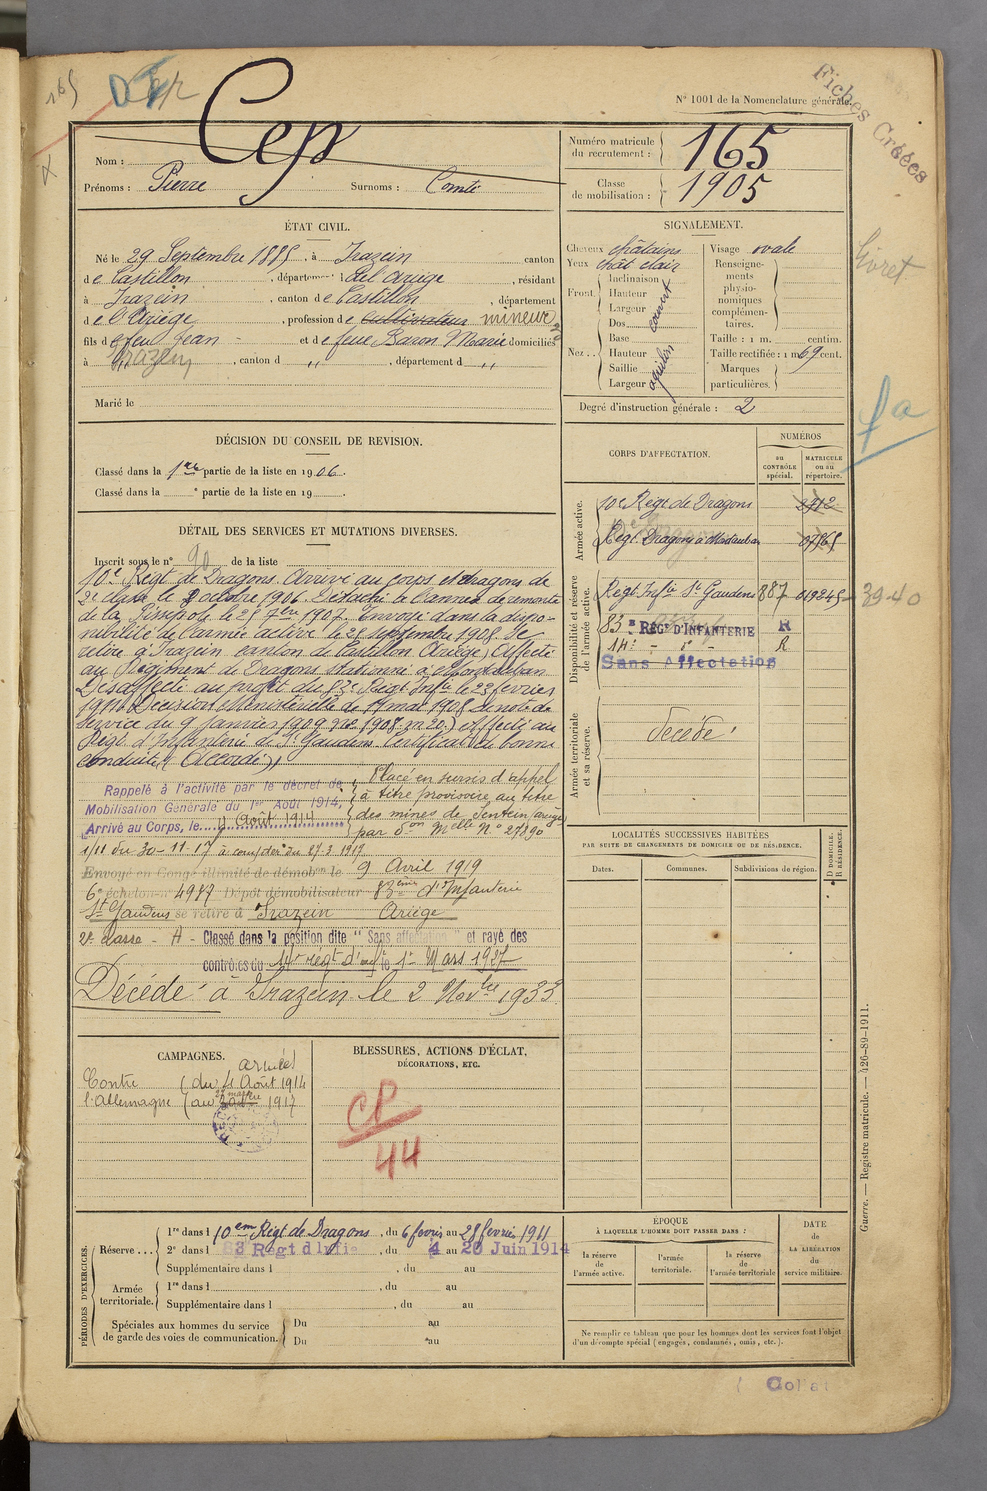 165
N° 1001 de la Nomenclature générale.
Fiches Créées
Nom : Cep
Prénoms : Pierre Surnoms : Comté
Numéro matricule du recrutement : 165
Classe de mobilisation : 1905
ÉTAT CIVIL.
Né le 29 Septembre 1885, à Irazein canton
de Castillon, département de l'Ariège, résidant
à Irazein, canton de Castillon, département
de l'Ariège, profession de cultivateur mineur
fils de feu Jean et de feue Baron Marie domiciliés
à Irazein, canton d ,, , département d ,,
Marié le
SIGNALEMENT.
Cheveux châtains
Yeux chât clair
Front
Inclinaison
Hauteur
Largeur
Nez
Dos
Base
Hauteur
Saillie
Largeur
Visage ovale
Renseignements physionomiques complémentaires.
Taille : 1 m. centim.
Taille rectifiée : 1 m 69 cent.
Marques particulières.
Degré d'instruction générale : 2
Livret
DÉCISION DU CONSEIL DE REVISION.
Classé dans la 1re partie de la liste en 1906.
Classé dans la e partie de la liste en 19
CORPS D'AFFECTATION.
NUMÉROS
au CONTRÔLE spécial.
MATRICULE ou au répertoire.
Armée active.
10e Régt de Dragons
Régt Dragons à Montauban
Disponibilité et réserve de l'armée active.
Régt Infie St Gaudens 887 019245 - 39-40
83e RÉGt D'INFANTERIE R
14e - d° - R
Sans Affectation
Armée territoriale et sa réserve.
Décédé
DÉTAIL DES SERVICES ET MUTATIONS DIVERSES.
Inscrit sous le n° 90 de la liste
10e Régt de Dragons. Arrivé au corps et dragons de
2e classe le 8 octobre 1906. Détaché à l'annexe de remonte
de la 25 7bre 1907. Envoyé dans la dispo-
nibilité de l'armée active le 25 septembre 1908. Se
retire à Irazein canton de Castillon Ariège. Affecté
au Régiment de Dragons stationné à Montauban
Désaffecté au profit du 83e Régt Infie le 23 février
1911 (Décisions Ministérielle du mai 1908 et note de
service du 9 janvier 1909 Affecté au
Régt d'Infanterie de St Gaudens. Certificat de bonne
conduite (Accordé)
Rappelé à l'activité par le décret de
Mobilisation Générale du 1er Août 1914,
Arrivé au Corps, le 4 Août 1914
Placé en sursis d'appel
à titre provisoire au titre
des mines de Sentein (Ariège)
par Don Melle N° 27890
1/11 du 30-11-17 à compter du 27-3-1917
Envoyé en Congé illimité de démobon le 9 Avril 1919
6e échelon n° 4987 Dépôt démobilisateur 83ème d'Infanterie
St Gaudens se retire à Irazein Ariège
2e classe - A - Classé dans la position dite "Sans affectation" et rayé des
contrôles du 14e régt d'infie le 1er Mars 1927
Décédé à Irazein le 2 Novbre 1933
LOCALITÉS SUCCESSIVES HABITÉES
PAR SUITE DE CHANGEMENTS DE DOMICILE OU DE RÉSIDENCE.
Dates.
Communes.
Subdivisions de région.
D DOMICILE. R RÉSIDENCE.
CAMPAGNES.
armées
Contre (du 4 Août 1914
l'Allemagne (au 1917
BLESSURES, ACTIONS D'ÉCLAT,
DÉCORATIONS, ETC.
CP
44
PÉRIODES D'EXERCICES.
Réserve...
1re dans l 10em Régt de Dragons, du 6 février au 28 fevrier 1911
2e dans l 83 Régt d'Infie, du 4 au 20 Juin 1914
Supplémentaire dans l , du au
Armée territoriale.
1re dans l , du au
Supplémentaire dans l , du au
Spéciales aux hommes du service de garde des voies de communication.
Du au
Du au
ÉPOQUE
À LAQUELLE L'HOMME DOIT PASSER DANS :
la réserve de l'armée active.
l'armée territoriale.
la réserve de l'armée territoriale
DATE DE LA LIBÉRATION du service militaire.
Ne remplir ce tableau que pour les hommes dont les services font l'objet
d'un décompte spécial (engagés, condamnés, omis, etc.).
Guerre. — Registre matricule. — 426-89-1911.